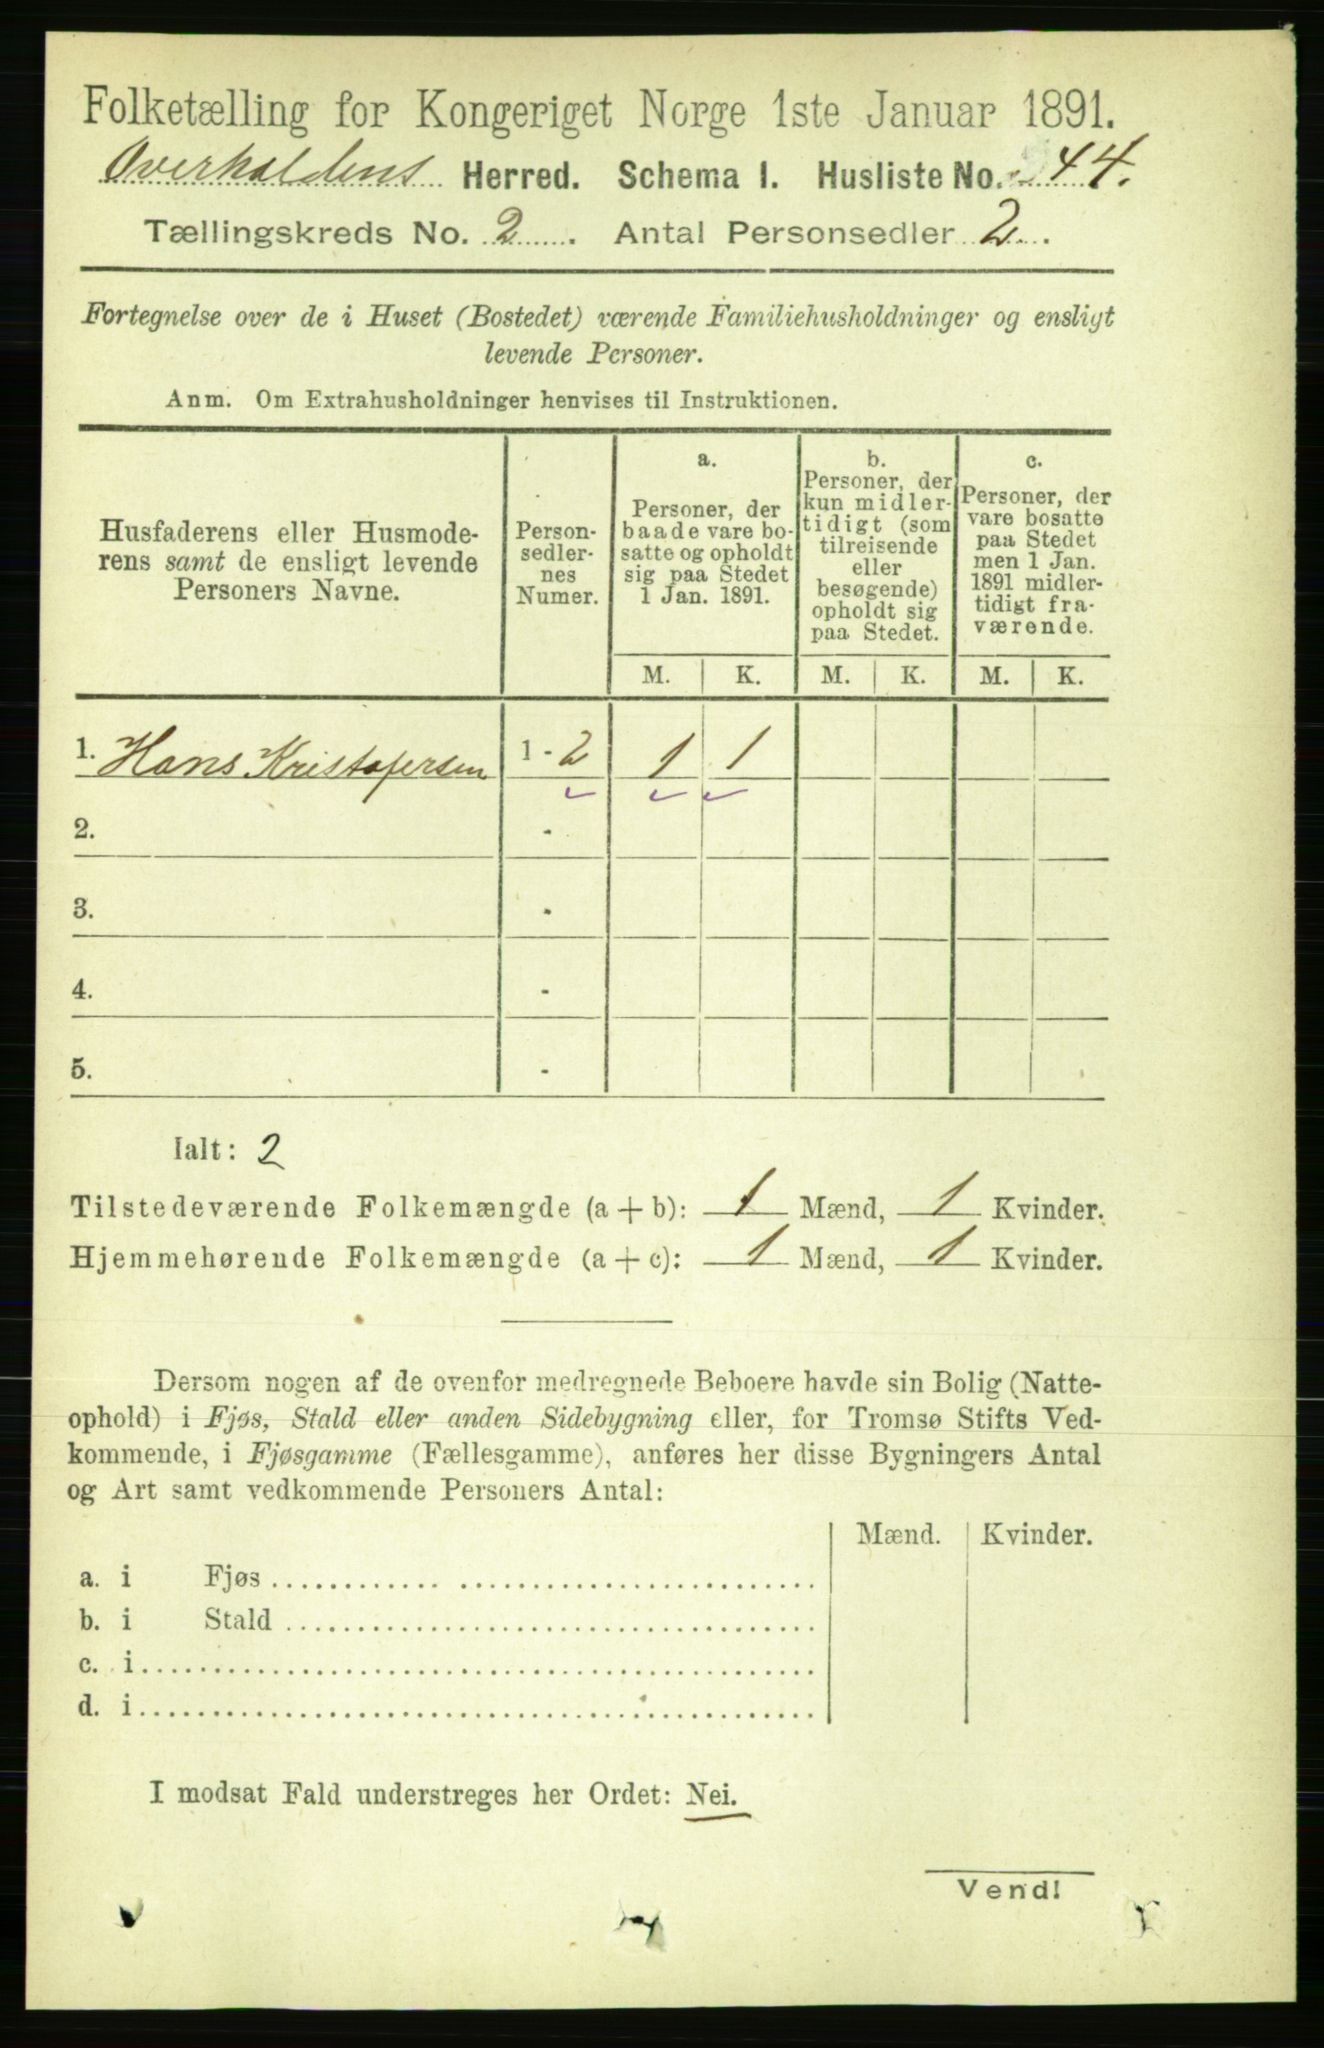 Folketælling for Kongeriget Norge 1ste Januar 1891.
Overhaldens Herred. Schema I. Husliste No. 44.
Tællingskreds No. 2. Antal Personsedler 2.
Fortegnelse over de i Huset (Bostedet) værende Familiehusholdninger og ensligt
levende Personer.
Anm. Om Extrahusholdninger henvises til Instruktionen.
Husfaderens eller Husmode-
rens samt de ensligt levende
Personers Navne.
Person-
sedler-
nes
Numer.
a.
Personer, der
baade vare bo-
satte og opholdt
sig paa Stedet
1 Jan. 1891.
b.
Personer, der
kun midler-
tidigt (som
tilreisende
eller
besøgende)
opholdt sig
paa Stedet.
c.
Personer, der
vare bosatte
paa Stedet
men 1 Jan.
1891 midler-
tidigt fra-
værende.
M. K. M. K. M. K.
1. Hans Kristofersen 1 - 2 1 1
2. -
3. -
4. -
5. -
Ialt: 2
Tilstedeværende Folkemængde (a + b): 1 Mænd, 1 Kvinder.
Hjemmehørende Folkemængde (a + c): 1 Mænd, 1 Kvinder.
Dersom nogen af de ovenfor medregnede Beboere havde sin Bolig (Natte-
ophold) i Fjøs, Stald eller anden Sidebygning eller, for Tromsø Stifts Ved-
kommende, i Fjøsgamme (Fællesgamme), anføres her disse Bygningers Antal
og Art samt vedkommende Personers Antal:
Mænd. Kvinder.
a. i Fjøs
b. i Stald
c. i
d. i
I modsat Fald understreges her Ordet: Nei.
Vend!